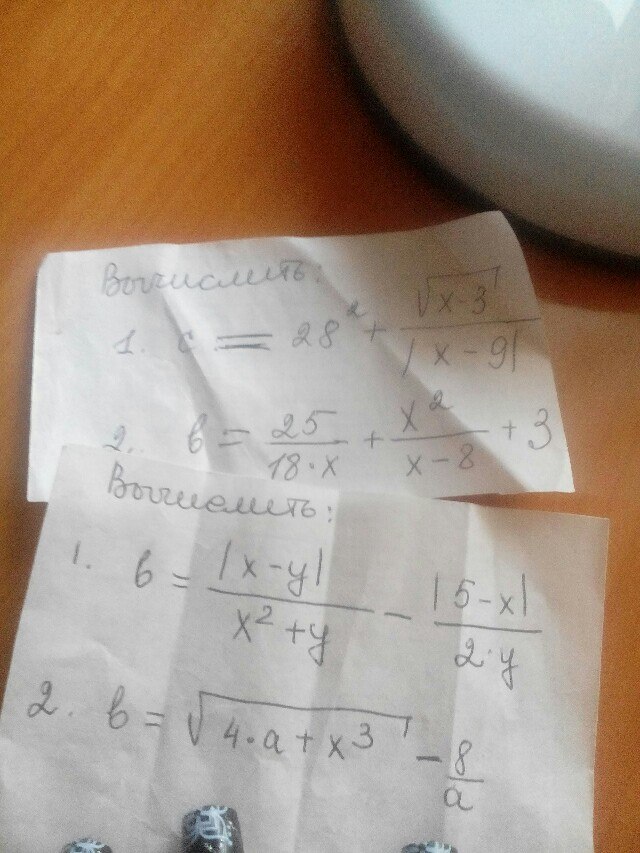 Вычислить:
1. c = 28² + √(x-3) / |x-9|
2. b = 25/(18·x) + x²/(x-8) + 3
Вычислить:
1. b = |x-y| / (x²+y) - |5-x| / (2·y)
2. b = √(4·a+x³) - 8/a